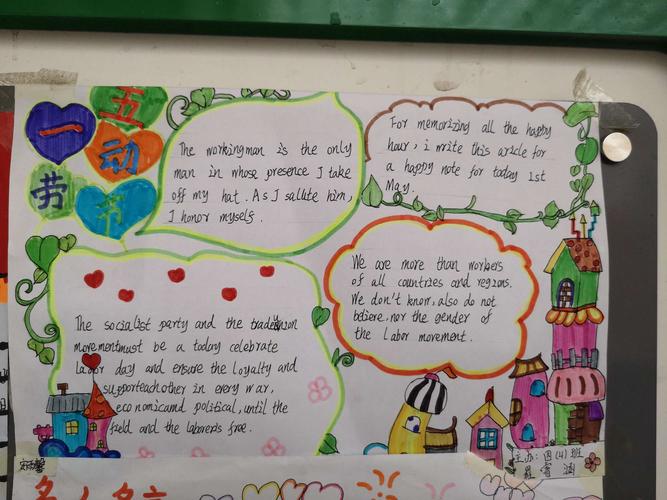 五
一
动
劳
节
The workingman is the only
man in whose presence I take
off my hat. As I sallute him,
I honor myself.
For memorizing all the happy
haur, i write this aricle for
a happy note for today 1st
May.
We are more than workers
of all countries and regions.
We don't know, also do not
believe, nor the gender of
the labor movement.
The socialist party and the tradeunion
movementmust be a today celebrate
labor day and ensure the loyalty and
supporteachother in every war,
economicamd political, until the
field and the laborers free.
主办: 四(4)班